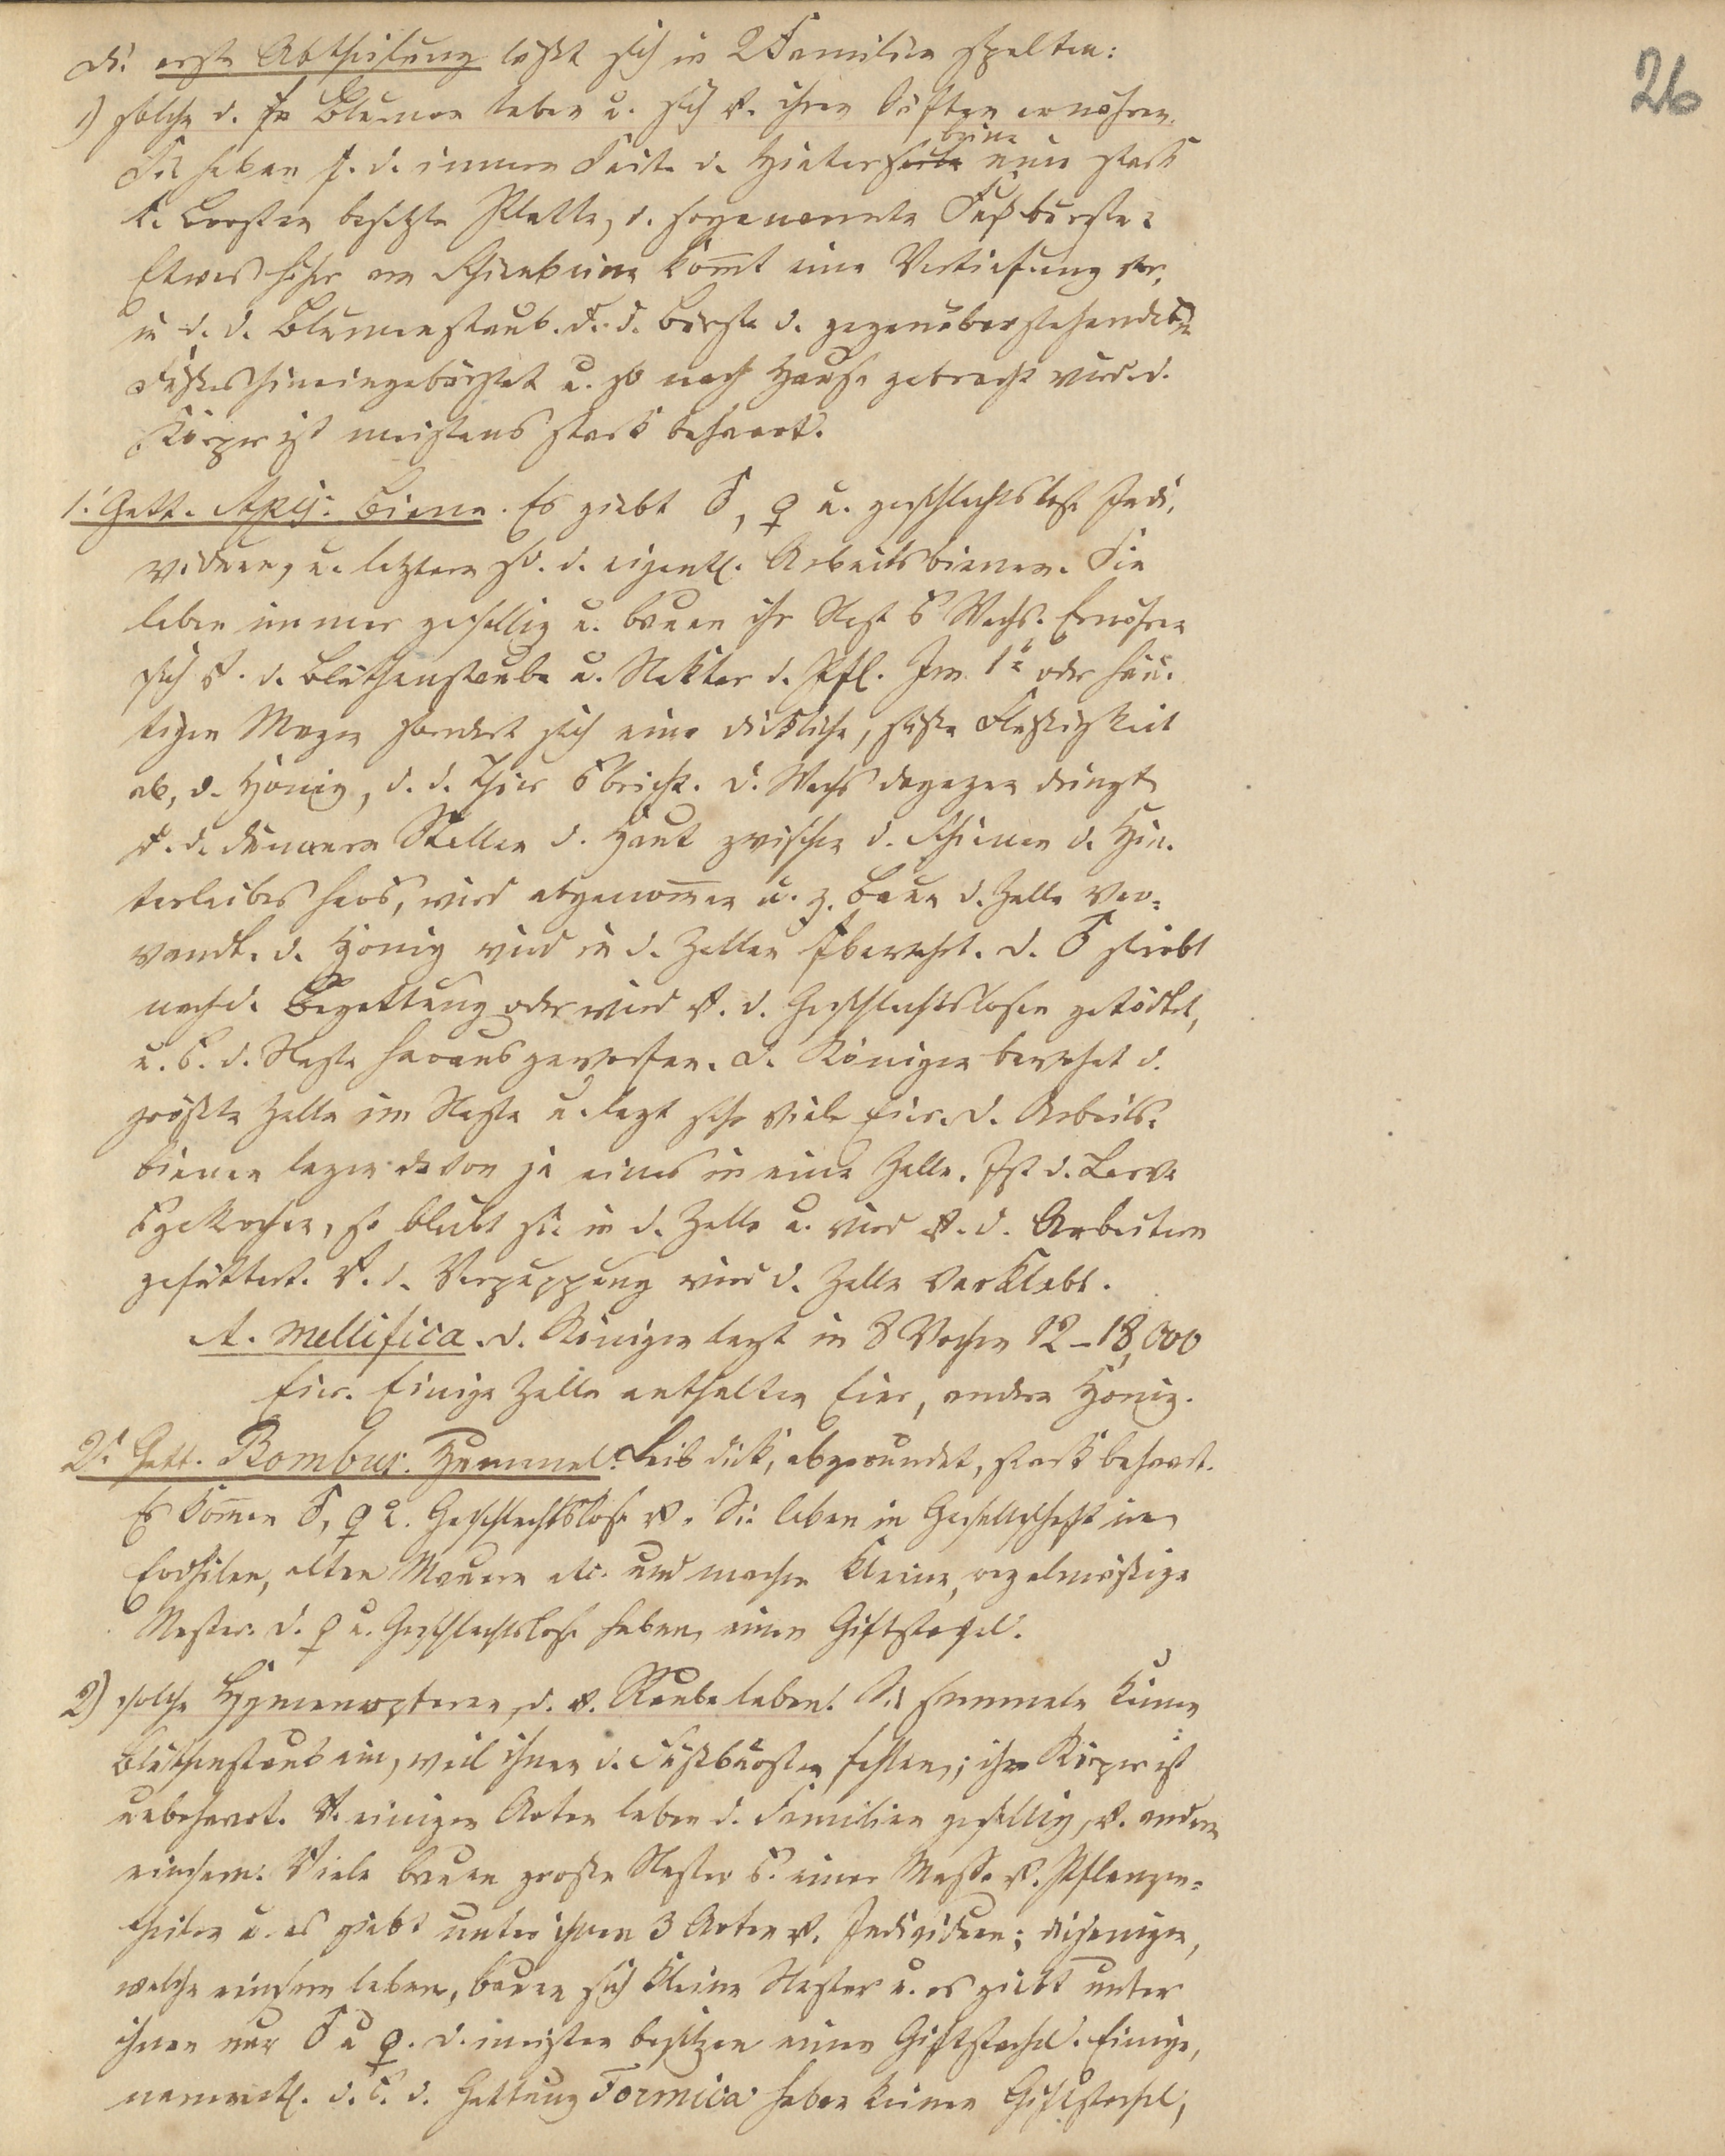 26
D. erste Abtheilung läßt sich in 2 Familien spalten:
1) solche d. in Blumen leben u. sich v. ihren Säften ernähren.
Sie haben f. d. innern Seite d. Hinterbeine eine stark
b. Borsten besetzte Platte, d. sogenannte Fußbürste.
Etwas höher am Schienbeine kommt eine Vertiefung vor,
in d. d. Blumenstaub v. d. Bürste d. gegenüberstehenden
Fußes hineingebürstet u. so nach Hause gebracht wird. d.
Körper ist meistens stark behaart.
1. Gatt. Apis. Biene. Es giebt ♂, ♀ u. geschlechtslose Indi-
viduen, u. letztere sd. d. eigentl. Arbeitsbienen. Sie
leben immer gesellig u. bauen ihr Nest Wachs. Ernähren
sich v. d. Blüthenstaube u. Nektar d. Pfl. Im 1n oder häu-
tigen Magen sondert sich eine dickliche, süße Flüssigkeit
ab, d. Honig, d. d. Thier bricht. D. Wachs dagegen dringt
d. d. dünnern Stellen d. Haut zwischen d. Schienen d. Hin-
terleibes heraus, wird abgenommen u. z. Baue d. Zelle ver-
wandt. d. Honig wird in d. Zellen fbewahrt. D. ♂ stirbt
nach d. Begattung oder wird v. d. Geschlechtslosen getödtet,
u. d. Neste herausgeworfen. D. Königin bewohnt d.
größte Zelle im Neste u. legt sehr viele Eier. D. Arbeits-
bienen legen davon je eines in eine Zelle. Ist d. Larve
gekrochen, so bleibt sie in d. Zelle u. wird v. d. Arbeitern
gefüttert. V. d. Verpuppung wird d. Zelle verklebt.
A. mellifica. D. Königin legt in 8 Wochen 12–18,000
Eier. Einige Zelle enthalten Eier, andre Honig.
2. Gatt. Bombus. Hummel. Leib dick, abgerundet, stark behaart.
Es kommen ♂, ♀ u. Geschlechtslose v. Sie leben in Gesellschaft in
Erdhölen, alten Mauern etc. und machen kleine, regelmäßige
Nester. D. ♀ u. Geschlechtslose haben einen Giftstachel.
2) solche Hymenopteren, d. v. Raube leben. Sie sammeln keinen
Blüthenstaub ein, weil ihnen d. Fußbürsten fehlen; ihr Körper ist
unbehaart. V. einigen Arten leben d. Familien gesellig, v. andern
einsam. Viele bauen große Nester einer Masse v. Pflanzen-
theilen u. es giebt unter ihnen 3 Arten v. Individuen; diejenigen,
welche einsam leben, bauen sich kleine Nester u. es giebt unter
ihnen nur ♂ u ♀. D. meisten besitzen einen Giftstachel. Einige,
namentl. d. d. Gattung Formica haben keinen Giftstachel,